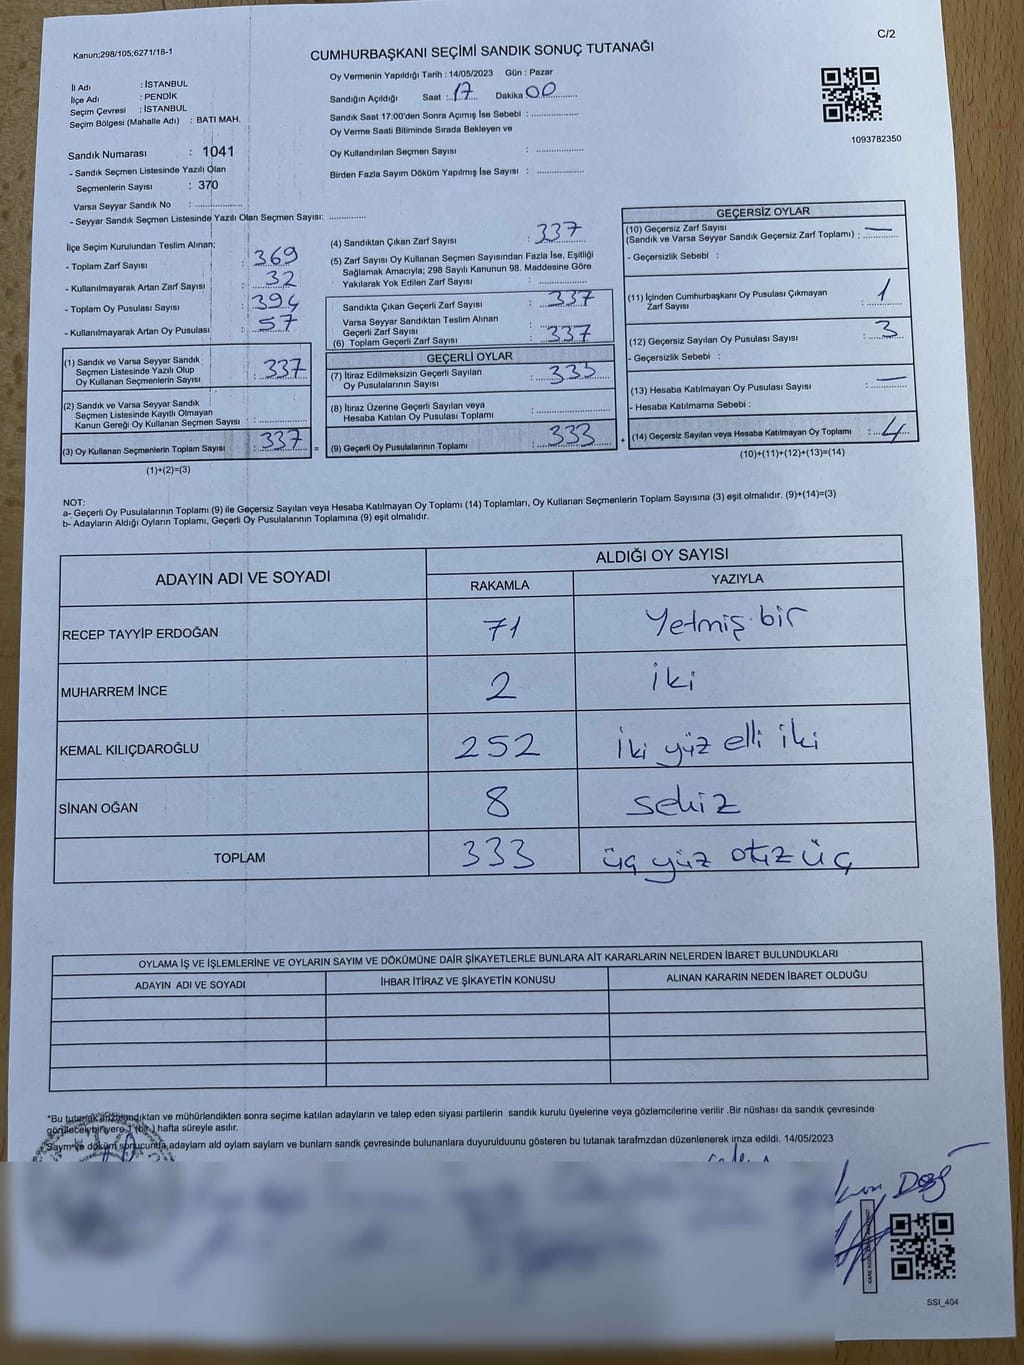 Kanun;298/105;6271/18-1
C/2
CUMHURBAŞKANI SEÇİMİ SANDIK SONUÇ TUTANAĞI
İl Adı : İSTANBUL
İlçe Adı : PENDİK
Seçim Çevresi : İSTANBUL
Seçim Bölgesi (Mahalle Adı) : BATI MAH.
Oy Vermenin Yapıldığı Tarih : 14/05/2023 Gün : Pazar
Sandığın Açıldığı Saat : 17 Dakika 00
Sandık Saat 17:00'den Sonra Açımış İse Sebebi :
Oy Verme Saati Bitiminde Sırada Bekleyen ve
Oy Kullandırılan Seçmen Sayısı :
Birden Fazla Sayım Döküm Yapılmış İse Sayısı :
1093782350
Sandık Numarası : 1041
- Sandık Seçmen Listesinde Yazılı Olan
Seçmenlerin Sayısı : 370
Varsa Seyyar Sandık No :
- Seyyar Sandık Seçmen Listesinde Yazılı Olan Seçmen Sayısı:
İlçe Seçim Kurulundan Teslim Alınan;
- Toplam Zarf Sayısı : 369
- Kullanılmayarak Artan Zarf Sayısı : 32
- Toplam Oy Pusulası Sayısı : 394
- Kullanılmayarak Artan Oy Pusulası : 57
(1) Sandık ve Varsa Seyyar Sandık
Seçmen Listesinde Yazılı Olup
Oy Kullanan Seçmenlerin Sayısı : 337
(2) Sandık ve Varsa Seyyar Sandık
Seçmen Listesinde Kayıtlı Olmayan
Kanun Gereği Oy Kullanan Seçmen Sayısı :
(3) Oy Kullanan Seçmenlerin Toplam Sayısı : 337 =
(1)+(2)=(3)
(4) Sandıktan Çıkan Zarf Sayısı : 337
(5) Zarf Sayısı Oy Kullanan Seçmen Sayısından Fazla İse, Eşitliği
Sağlamak Amacıyla; 298 Sayılı Kanunun 98. Maddesine Göre
Yakılarak Yok Edilen Zarf Sayısı :
Sandıkta Çıkan Geçerli Zarf Sayısı : 337
Varsa Seyyar Sandıktan Teslim Alınan
Geçerli Zarf Sayısı :
(6) Toplam Geçerli Zarf Sayısı : 337
GEÇERLİ OYLAR
(7) İtiraz Edilmeksizin Geçerli Sayılan
Oy Pusulalarının Sayısı : 333
(8) İtiraz Üzerine Geçerli Sayılan veya
Hesaba Katılan Oy Pusulası Toplamı :
(9) Geçerli Oy Pusulalarının Toplamı : 333 +
GEÇERSİZ OYLAR
(10) Geçersiz Zarf Sayısı
(Sandık ve Varsa Seyyar Sandık Geçersiz Zarf Toplamı) : —
- Geçersizlik Sebebi :
(11) İçinden Cumhurbaşkanı Oy Pusulası Çıkmayan
Zarf Sayısı : 1
(12) Geçersiz Sayılan Oy Pusulası Sayısı : 3
- Geçersizlik Sebebi :
(13) Hesaba Katılmayan Oy Pusulası Sayısı : —
- Hesaba Katılmama Sebebi :
(14) Geçersiz Sayılan veya Hesaba Katılmayan Oy Toplamı : 4
(10)+(11)+(12)+(13)=(14)
NOT:
a- Geçerli Oy Pusulalarının Toplamı (9) ile Geçersiz Sayılan veya Hesaba Katılmayan Oy Toplamı (14) Toplamları, Oy Kullanan Seçmenlerin Toplam Sayısına (3) eşit olmalıdır. (9)+(14)=(3)
b- Adayların Aldığı Oyların Toplamı, Geçerli Oy Pusulalarının Toplamına (9) eşit olmalıdır.
ADAYIN ADI VE SOYADI
ALDIĞI OY SAYISI
RAKAMLA YAZIYLA
RECEP TAYYİP ERDOĞAN 71 Yetmiş bir
MUHARREM İNCE 2 iki
KEMAL KILIÇDAROĞLU 252 İki yüz elli iki
SİNAN OĞAN 8 sekiz
TOPLAM 333 üç yüz otuz üç
OYLAMA İŞ VE İŞLEMLERİNE VE OYLARIN SAYIM VE DÖKÜMÜNE DAİR ŞİKAYETLERLE BUNLARA AİT KARARLARIN NELERDEN İBARET BULUNDUKLARI
ADAYIN ADI VE SOYADI İHBAR İTİRAZ VE ŞİKAYETİN KONUSU ALINAN KARARIN NEDEN İBARET OLDUĞU
*Bu tutanak imzalandıktan ve mühürlendikten sonra seçime katılan adayların ve talep eden siyasi partilerin sandık kurulu üyelerine veya gözlemcilerine verilir .Bir nüshası da sandık çevresinde
görülecek bir yere 1 (bir) hafta süreyle asılır.
Sayım ve döküm sonucunda adayların ald oylam saylam ve bunlarn sandk çevresinde bulunanlara duyurulduunu gösteren bu tutanak tarafmzdan düzenlenerek imza edildi. 14/05/2023
SSI_404